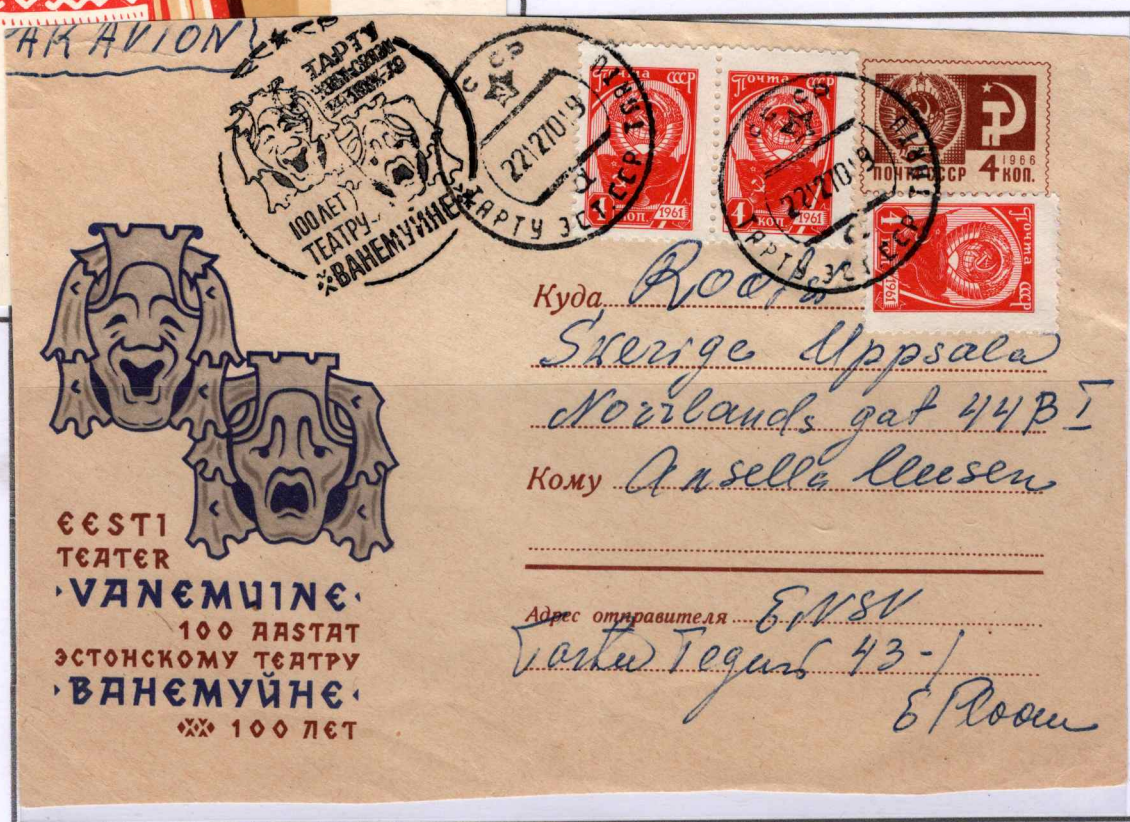 PAR AVION
100 ЛЕТ
ТЕАТРУ
ВАНЕМУЙНЕ
СССР
22 12 70 19
ТАРТУ ЭСТ ССР TARTU
Почта СССР
4 коп 1961
Почта СССР
4 коп 1961
СССР
22 12 70 19
ТАРТУ ЭСТ ССР TARTU
1966
ПОЧТА СССР 4 КОП.
Почта СССР
4 1961
Куда
Sverige Uppsala
Norrlands gat 44 B I
Кому Ansella
Адрес отправителя ENSV
Tartu 43-1
E Ploom
EESTI
TEATER
VANEMUINE
100 AASTAT
ЭСТОНСКОМУ ТЕАТРУ
ВАНЕМУЙНЕ
100 ЛЕТ